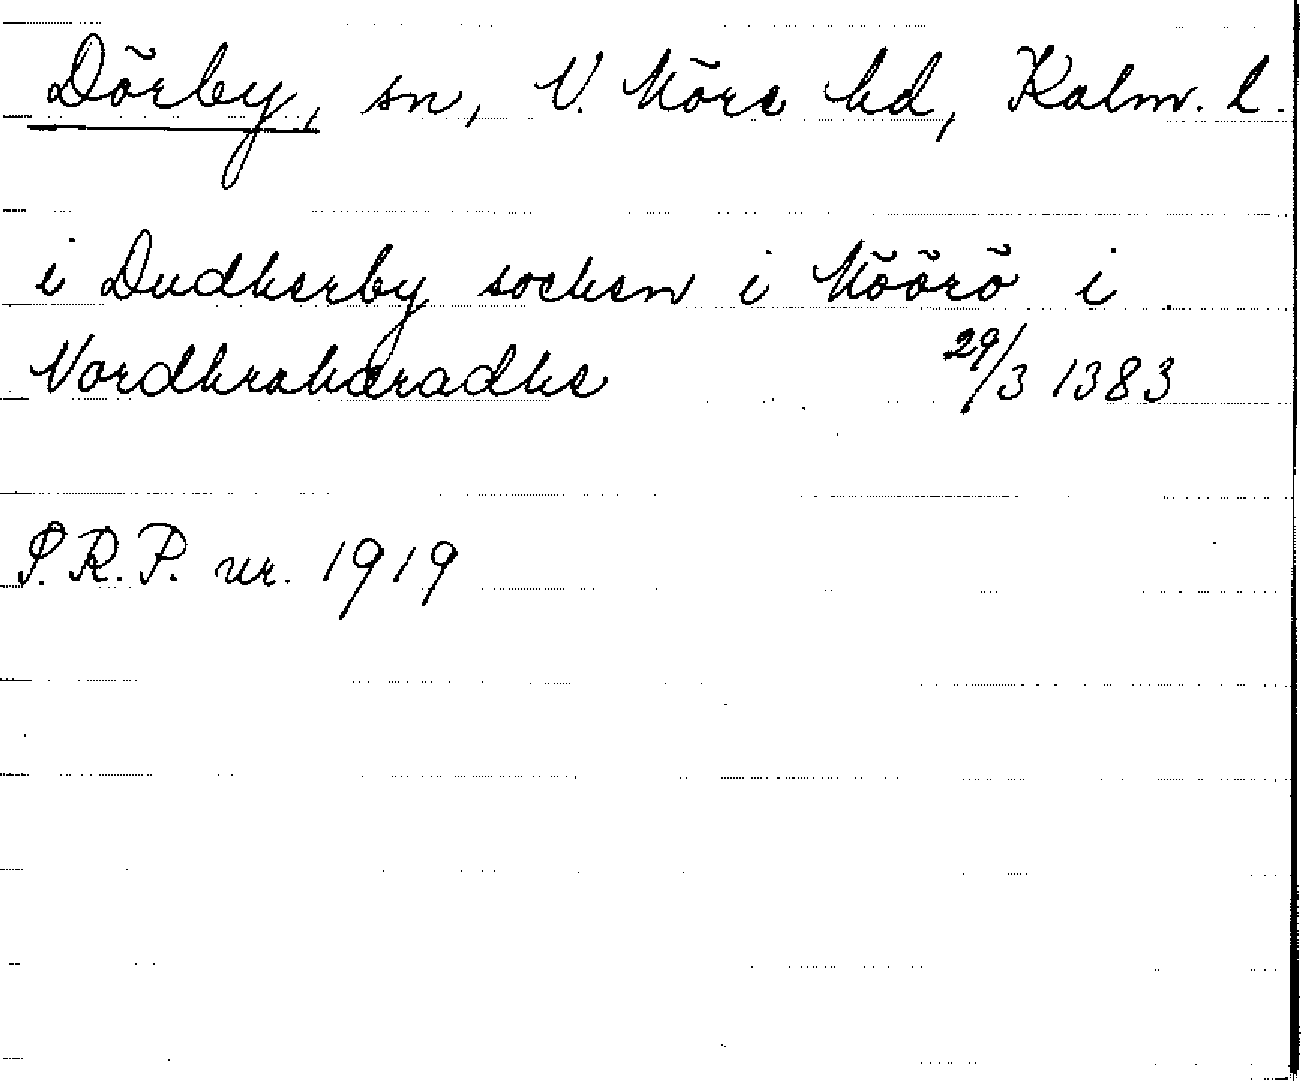 Dörby, sn, N. Möre hd, Kalm. l.
i Dudherby socken i Möörö i
Nordhrahæradhe 29/3 1383
S.R.P. nr. 1919